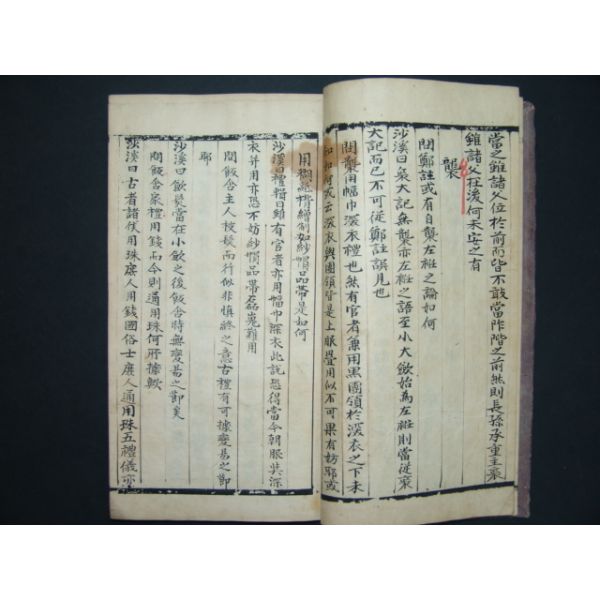 當之雖諸父位於前而皆不敢當阼階之前然則長孫承重主喪
雖諸父在後何未安之有
襲
問鄭註或有自襲左袵之論如何
沙溪曰喪大記無襲亦左袵之語至小大斂始為左袵則當從喪
大記而已不可從鄭註誤見也
問襲用幅巾深衣禮也然有官者兼用黑團領於深衣之下未
知如何或云深衣與團領皆是上服疊用似不可果有妨耶或
用綃造如紗帽品帶是如何
沙溪曰禮輯曰雖有官者亦用幅巾深衣此說恐得當今朝服與深
衣并用亦恐不妨紗帽品帶磊嵬難用
問飯含主人被髮而行似非慎終之意古禮有可據變易之節
耶
沙溪曰斂髮當在小斂之後飯含時無變易之節矣
問飯含家禮用錢而今則通用珠何所據歟
沙溪曰古者諸侯用珠庶人用錢國俗士庶人通用珠五禮儀亦